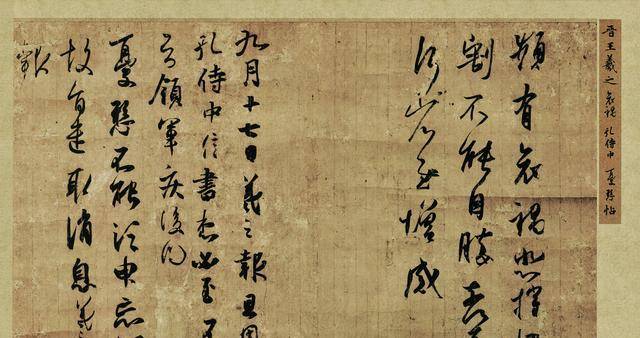 晉王羲之 哀禍 孔侍中 憂懸帖
頻有哀禍悲摧
割不能自勝奈
何省慰增感
九月十七日羲之報且因
孔侍中信書想必至不
知領軍疾後問
憂懸不能須臾忘
故旨遣取消息羲之
報